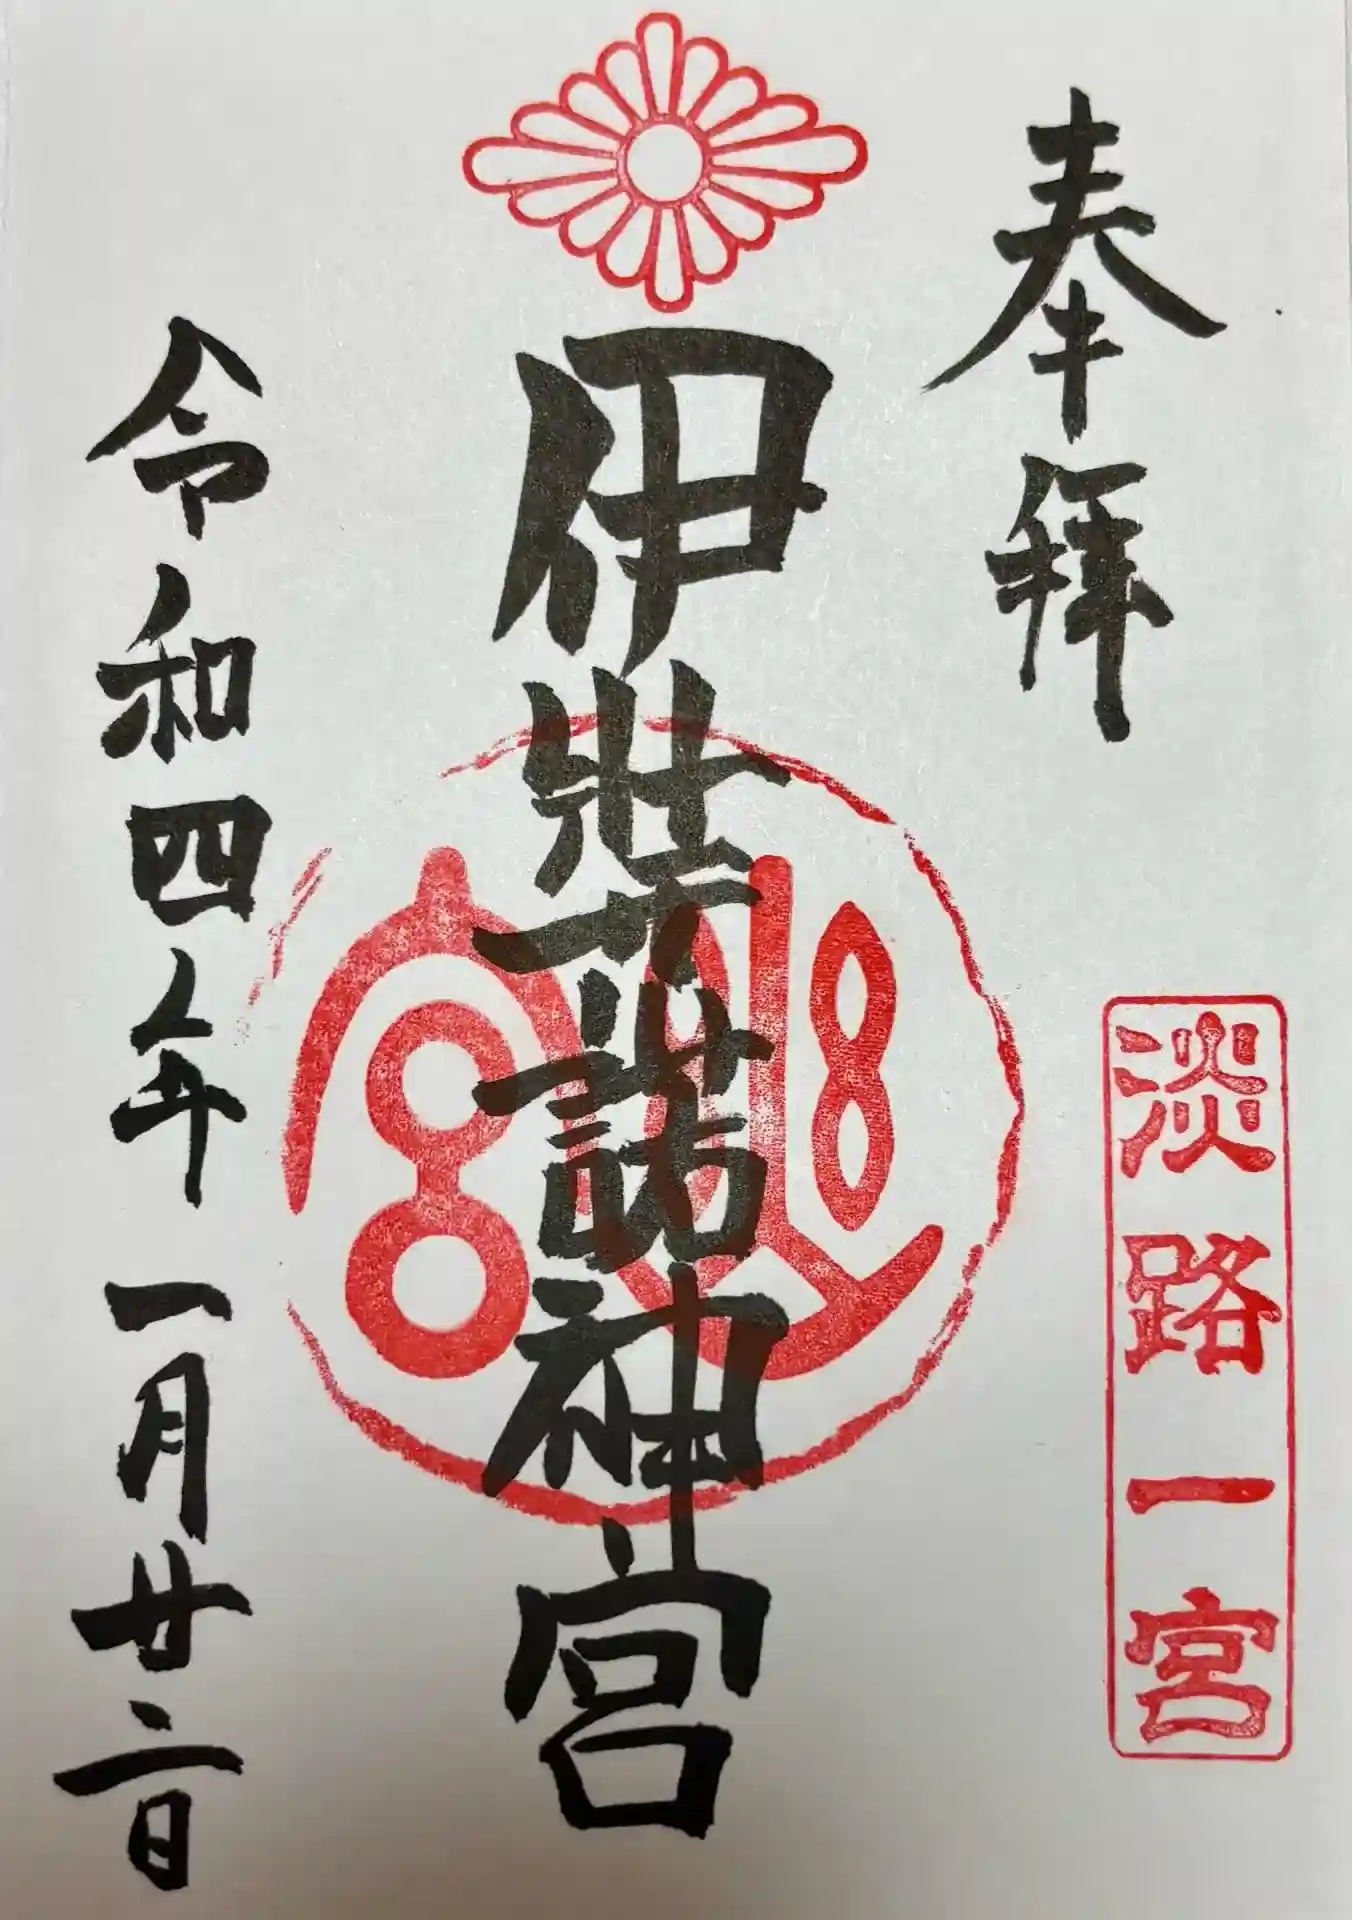 奉拝
淡路一宮
伊弉諾神宮
幽宮
令和四年一月廿二日